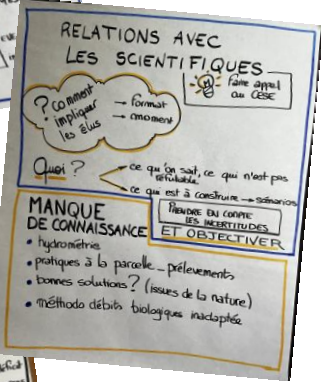 RELATIONS AVEC
LES SCIENTIFIQUES
faire appel
au CESE
? comment
impliquer
les élus
→ format
→ moment
Quoi ?
ce qu'on sait, ce qui n'est pas
réfutable
ce qui est à construire → scénarios
PRENDRE EN COMPTE
LES INCERTITUDES
ET OBJECTIVER
MANQUE
DE CONNAISSANCE
• hydrométrie
• pratiques à la parcelle - prélèvements
• bonnes solutions ? (issues de la nature)
• méthodo débits biologiques inadaptée